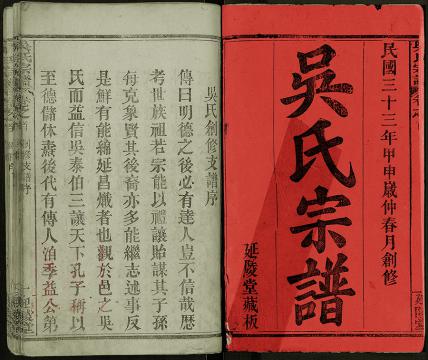 民國三十三年甲申歲仲春月創修
吳氏宗譜
延陵堂藏板
吳氏創修支譜序
傳曰明德之後必有達人豈不信哉歷
考世族祖若宗能以禮讓貽謀其子孫
每克象賢其後裔亦多能繼志述事反
是鮮有能綿延昌熾者也觀於邑之吳
氏而益信吳泰伯三讓天下孔子稱以
至德儲休袤後代有傳人洎季益公第
創修支譜序